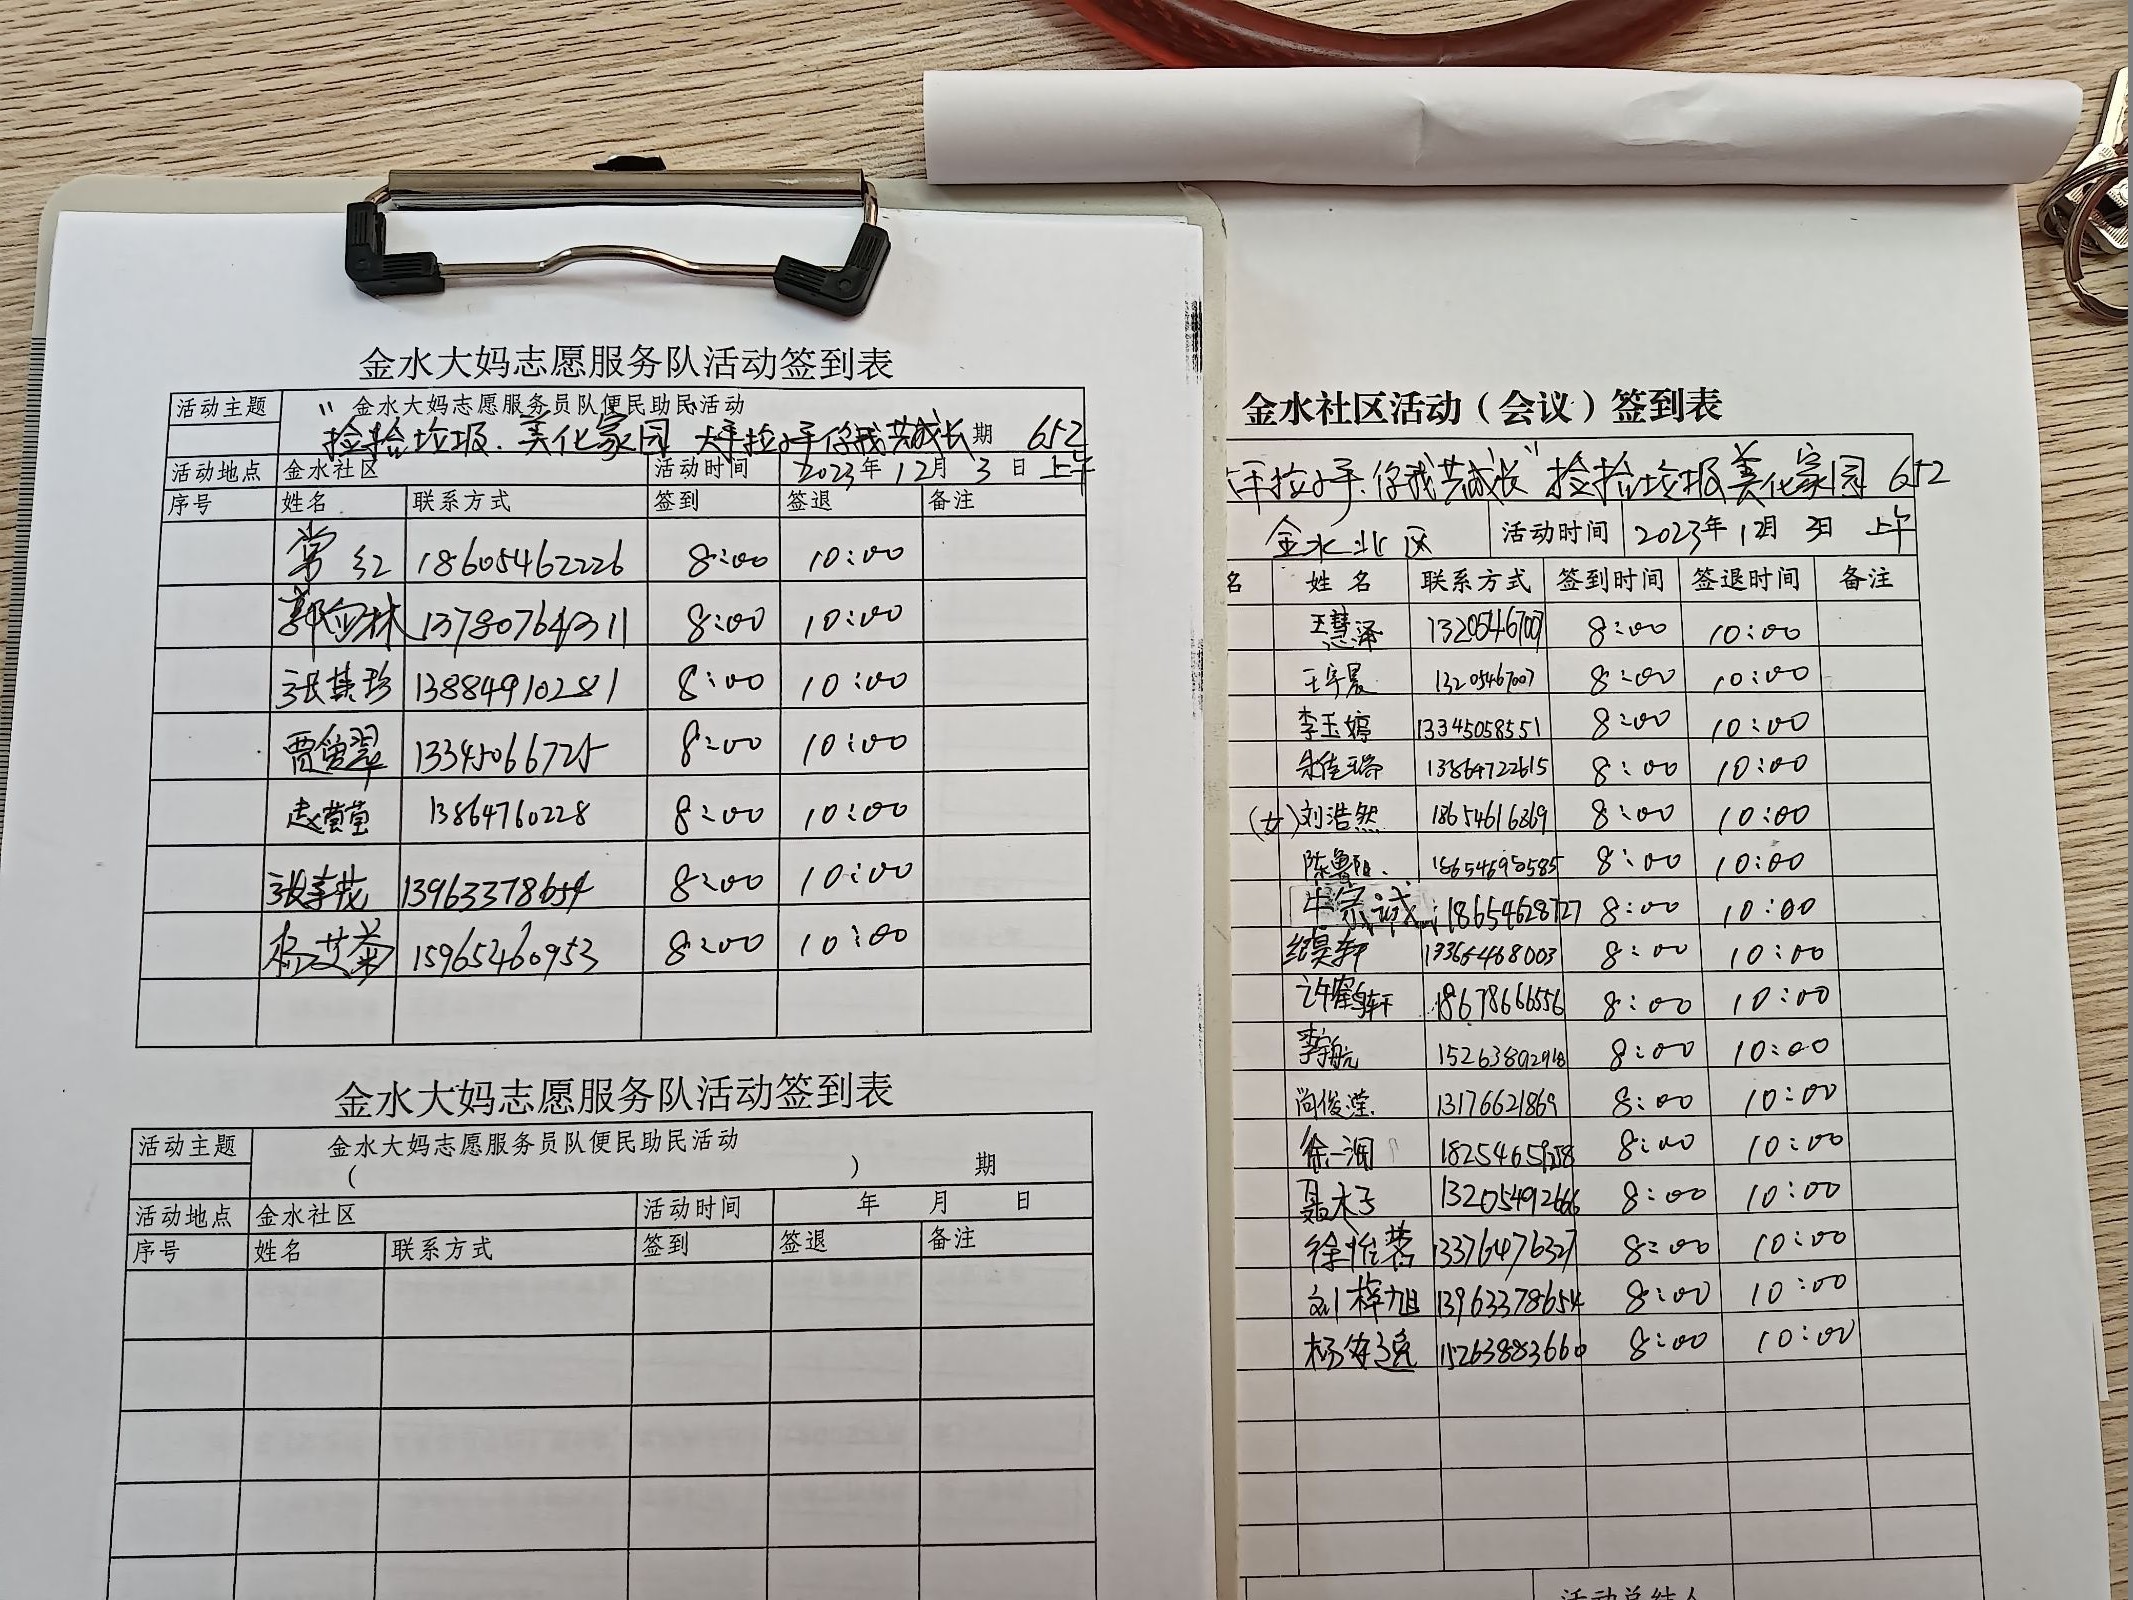 金水大妈志愿服务队活动签到表
活动主题 " 金水大妈志愿服务员队便民助民活动
捡拾垃圾、美化家园 大手拉小手 你我共成长 期 652
活动地点 金水社区 活动时间 2023年 12月 3日 上午
序号 姓名 联系方式 签到 签退 备注
常红 18605462226 8:00 10:00
郭向林 13780764311 8:00 10:00
张其珍 13884910281 8:00 10:00
贾曾翠 13345066725 8:00 10:00
赵莹莹 13864760228 8:00 10:00
张春花 13963378654 8:00 10:00
杨艾菊 15965460953 8:00 10:00
金水大妈志愿服务队活动签到表
活动主题 金水大妈志愿服务员队便民助民活动
( ) 期
活动地点 金水社区 活动时间 年 月 日
序号 姓名 联系方式 签到 签退 备注
金水社区活动（会议）签到表
大手拉小手、你我共成长"捡拾垃圾美化家园 652
金水北区 活动时间 2023年12月3日 上午
名 姓名 联系方式 签到时间 签退时间 备注
王慧泽 13205467007 8:00 10:00
王宇晨 13205467007 8:00 10:00
李玉婷 13345058551 8:00 10:00
13864722615 8:00 10:00
(女) 刘浩然 18654616869 8:00 10:00
18654690585 8:00 10:00
牛宗诚 18654628727 8:00 10:00
13365468003 8:00 10:00
许鹤轩 18678666556 8:00 10:00
李宇航 15263802918 8:00 10:00
尚俊滢 13176621869 8:00 10:00
徐一润 8:00 10:00
聂木子 13205492666 8:00 10:00
徐怡蓉 13376476327 8:00 10:00
刘梓旭 13963378654 8:00 10:00
杨安逸 15263883660 8:00 10:00
活动总结人